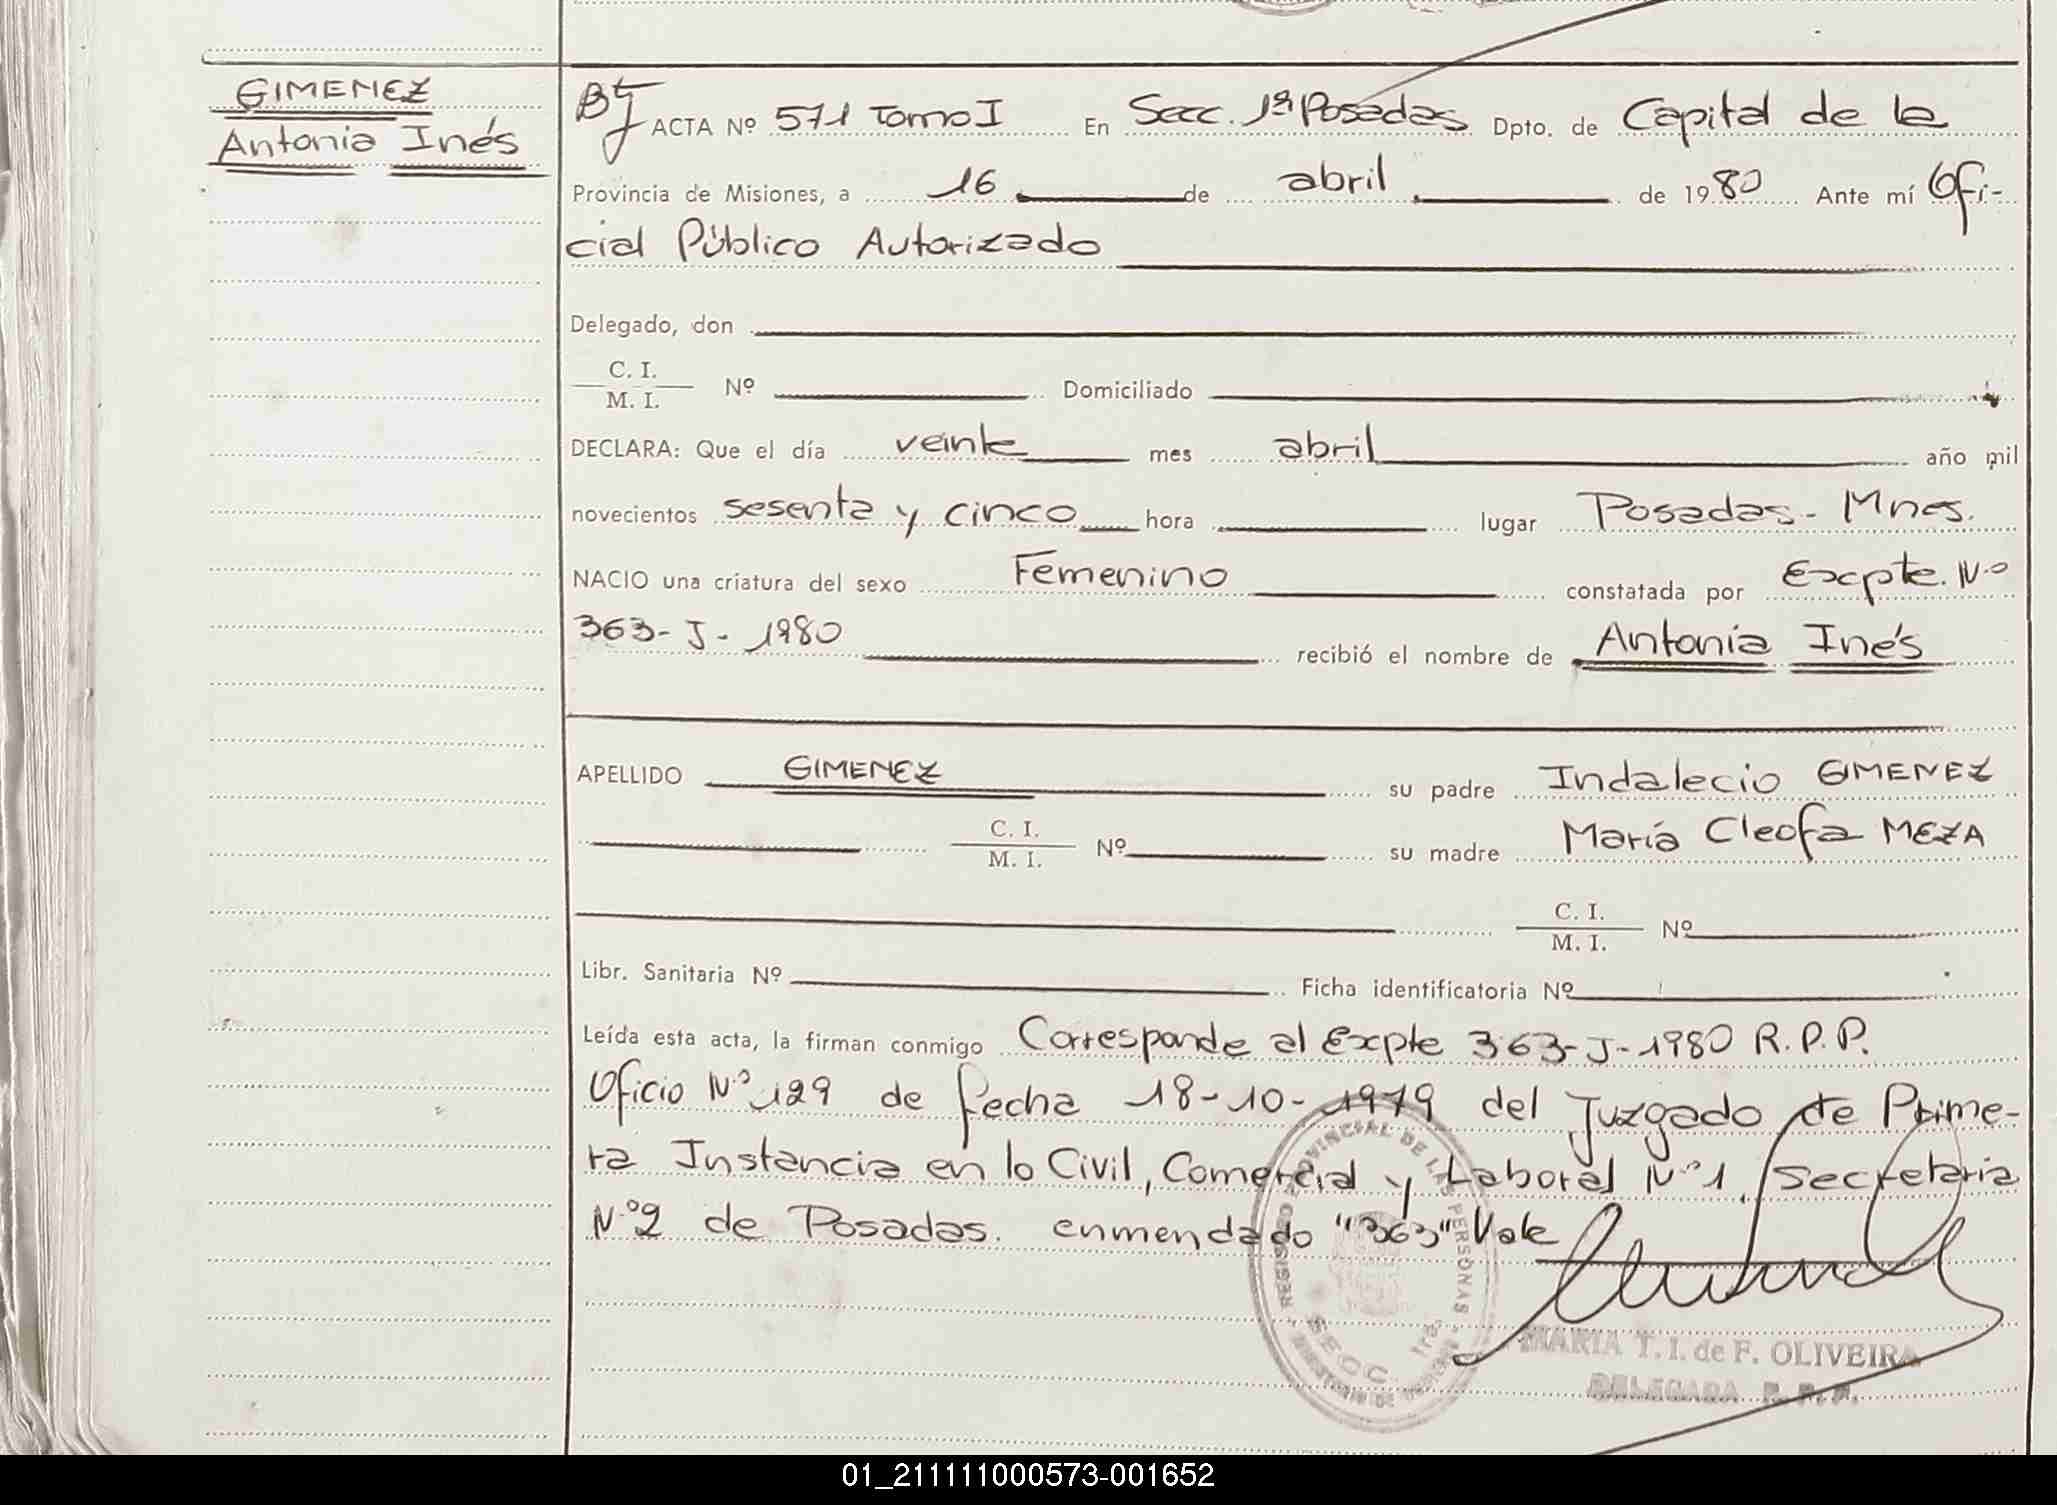 GIMENEZ
Antonia Inés
ACTA Nº 571 Tomo I En Secc. 1ª Posadas Dpto. de Capital de la
Provincia de Misiones, a 16 de abril de 1980 Ante mí Ofi-
cial Público Autorizado
Delegado, don
C. I.
M. I. Nº Domiciliado
DECLARA: Que el día veinte mes abril año mil
novecientos sesenta y cinco hora lugar Posadas - Mnes.
NACIO una criatura del sexo Femenino constatada por Expte. Nº
363-J-1980 recibió el nombre de Antonia Inés
APELLIDO GIMENEZ su padre Indalecio GIMENEZ
C. I.
M. I. Nº su madre María Cleofa MEZA
C. I.
M. I. Nº
Libr. Sanitaria Nº Ficha identificatoria Nº
Leída esta acta, la firman conmigo Corresponde al Expte 363-J-1980 R.P.P.
Oficio Nº 129 de fecha 18-10-1979 del Juzgado de Prime-
ra Instancia en lo Civil, Comercial y Laboral Nº 1, Secretaria
Nº 2 de Posadas. enmendado "363" Vale
REGISTRO PROVINCIAL DE LAS PERSONAS
SECC. 1ra.
MARIA T. I. de F. OLIVEIRA
DELEGADA R. P. P.
01_211111000573-001652